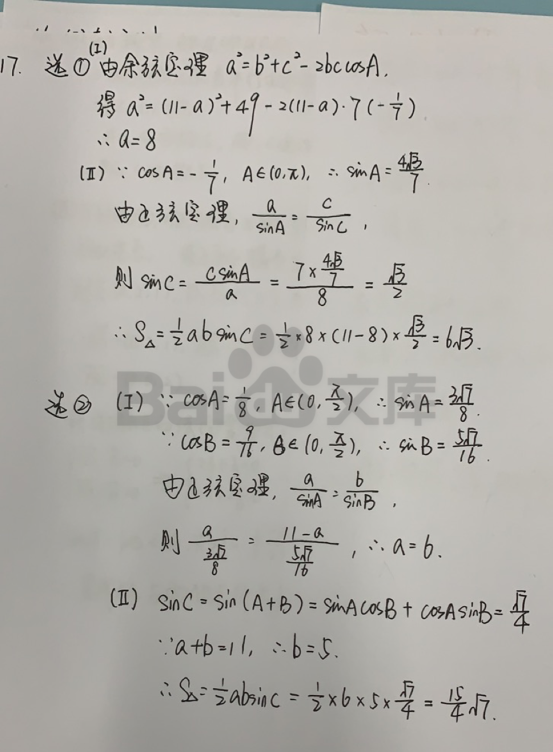 17. 选① (I) 由余弦定理 a²=b²+c²-2bccosA,
得 a²=(11-a)²+49-2(11-a)·7(-1/7)
∴a=8
(II) ∵ cosA=-1/7, A∈(0,π), ∴ sinA=4√3/7
由正弦定理, a/sinA=c/sinC,
则 sinC=csinA/a=(7×4√3/7)/8=√3/2
∴S△=1/2absinC=1/2×8×(11-8)×√3/2=6√3.
Bai 文库
选② (I) ∵ cosA=1/8, A∈(0,π/2), ∴ sinA=3√7/8.
∵cosB=9/16, B∈(0,π/2), ∴ sinB=5√7/16.
由正弦定理, a/sinA=b/sinB,
则 a/(3√7/8)=(11-a)/(5√7/16), ∴a=6.
(II) sinC=sin(A+B)=sinAcosB+cosAsinB=√7/4
∵a+b=11, ∴b=5.
∴S△=1/2absinC=1/2×6×5×√7/4=15/4√7.